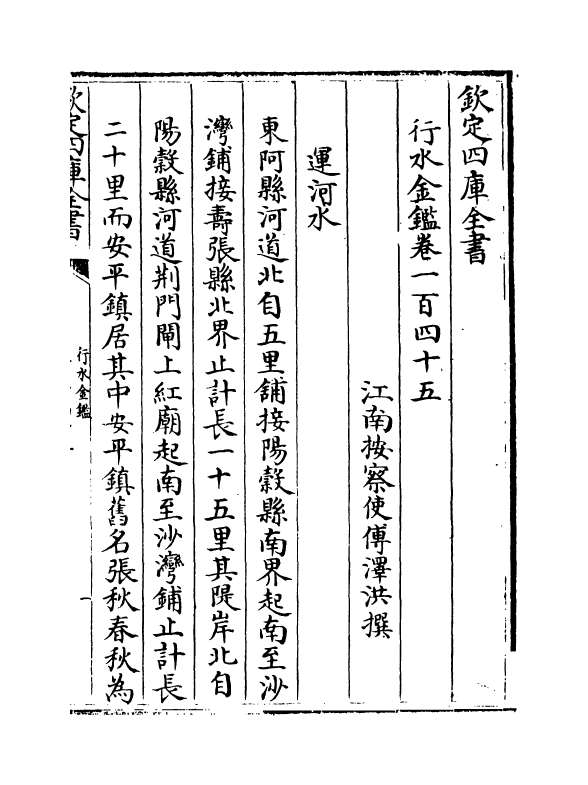 欽定四庫全書
行水金鑑卷一百四十五
江南按察使傅澤洪撰
運河水
東阿縣河道北自五里舖接陽穀縣南界起南至沙
灣鋪接壽張縣北界止計長一十五里其隄岸北自
陽穀縣河道荆門閘上紅廟起南至沙灣鋪止計長
二十里而安平鎮居其中安平鎮舊名張秋春秋為
欽定四庫全書
行水金鑑